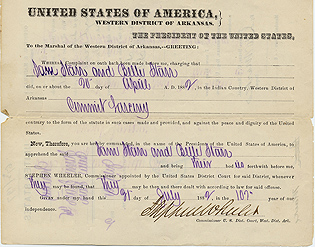 UNITED STATES OF AMERICA,
WESTERN DISTRICT OF ARKANSAS.
THE PRESIDENT OF THE UNITED STATES,
To the Marshal of the Western District of Arkansas,—GREETING:
WHEREAS Complaint on oath hath been made before me, charging that
Sam Starr and Belle Starr
did, on or about the 20" day of April A. D. 1882, in the Indian Country, Western District of
Arkansas
Commit Larceny
contrary to the form of the statute in such cases made and provided, and against the peace and dignity of the United
States.
Now, Therefore, you are hereby commanded, in the name of the President of the United States of America, to
apprehend the said Sam Starr and Belle Starr
and bring their bod ies forthwith before me,
STEPHEN WHEELER, Commissioner appointed by the United States District Court for said District, whenever
they may be found, that they may be then and there dealt with according to law for said offense.
Given under my hand this day of July 1882, in the 107" year of our
independence.
Stephen Wheeler
Commissioner U. S. Dist. Court, West. Dist. Ark.